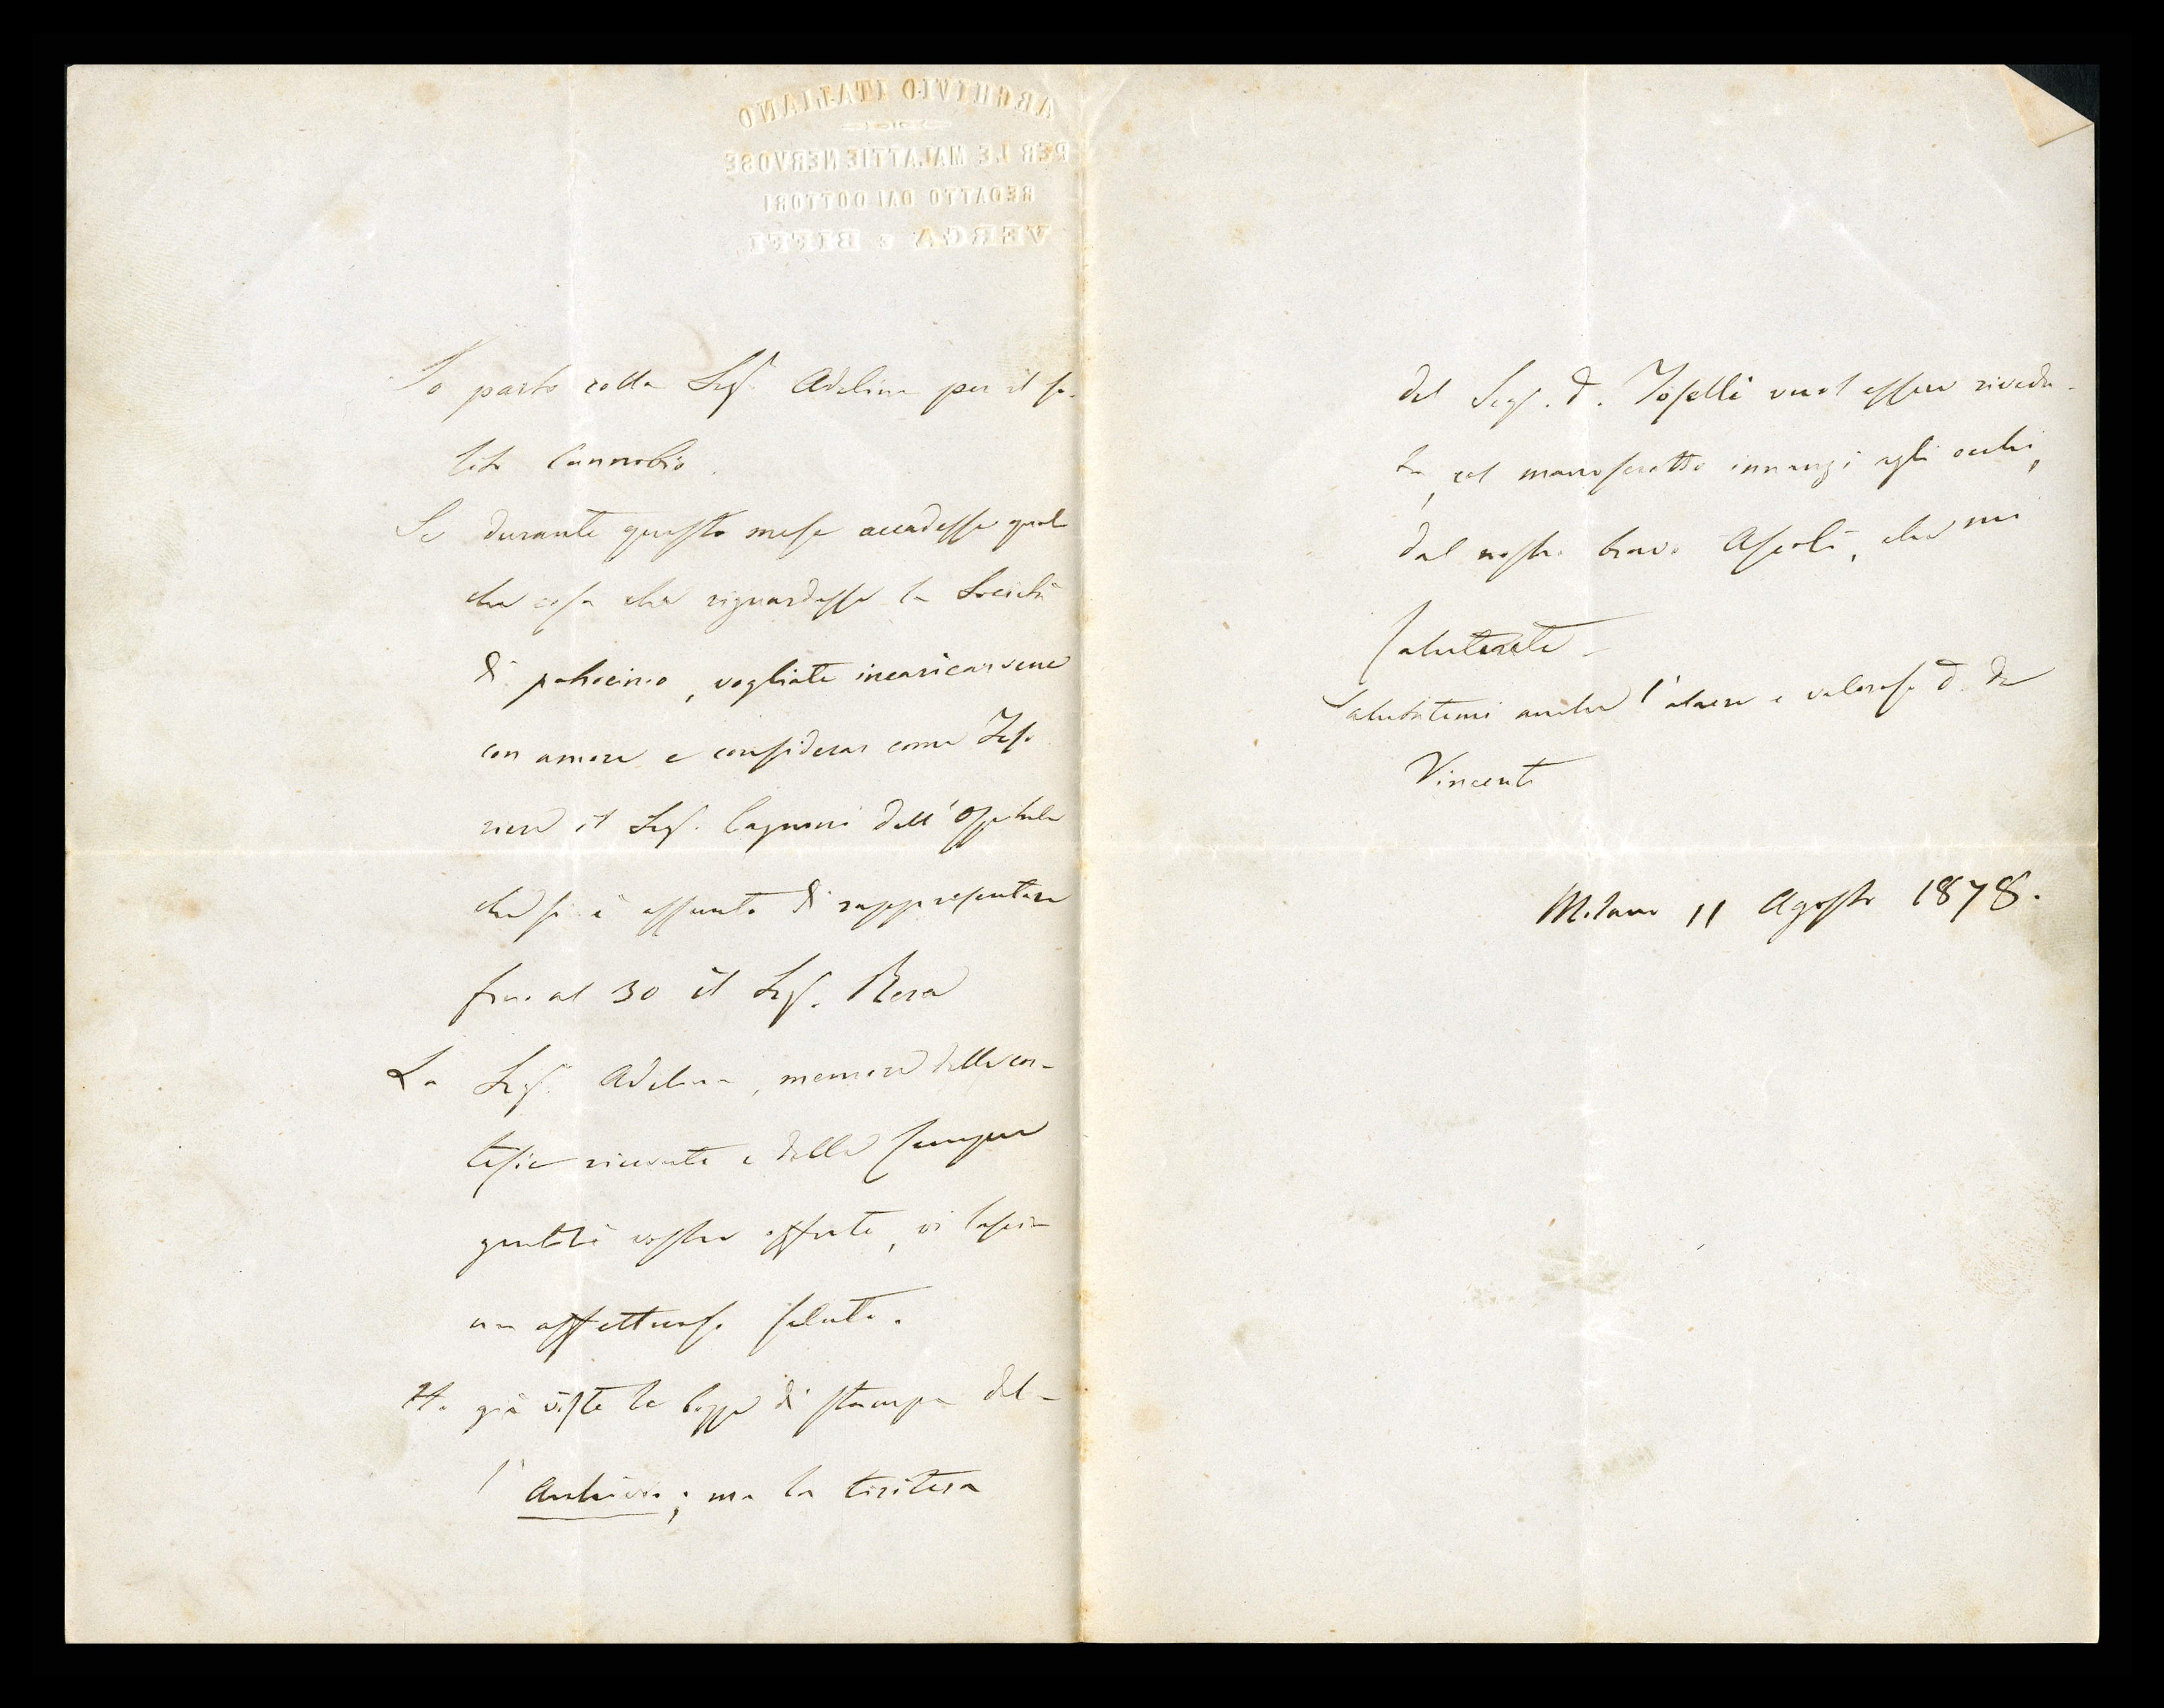 ARCHIVIO ITALIANO
PER LE MALATTIE NERVOSE
REDATTO DAI DOTTORI
VERGA E BIFFI
Io parto colla Sigʳ. Adelina per il so-
lito Cannobio.
Se durante questo mese accadesse qual
che cosa che riguardasse la Società
di patrocinio, vogliate incaricarvene
con amore e considerar come Teso
riere il Sigʳ. Cagnoni dell'Ospitale
che si è assunto di rappresentare
fino al 30 il Sigʳ. Resa
La Sigʳ. Adelina, memore delle cor-
tesie ricevute e delle sempre
gentili vostre offerte, vi lascia
un affettuoso saluto.
Ho già viste le bozze di stampa del-
l'Archivio; ma la tiritera
del Sigʳ. D. Toselli vuol essere rivedu-
ta, col manoscritto innanzi agli occhi,
dal nostro bravo Ascoli, che mi
saluterete
Salutatemi anche l'alacre e valoroso D. De
Vincenti
Milano 11 Agosto 1878.